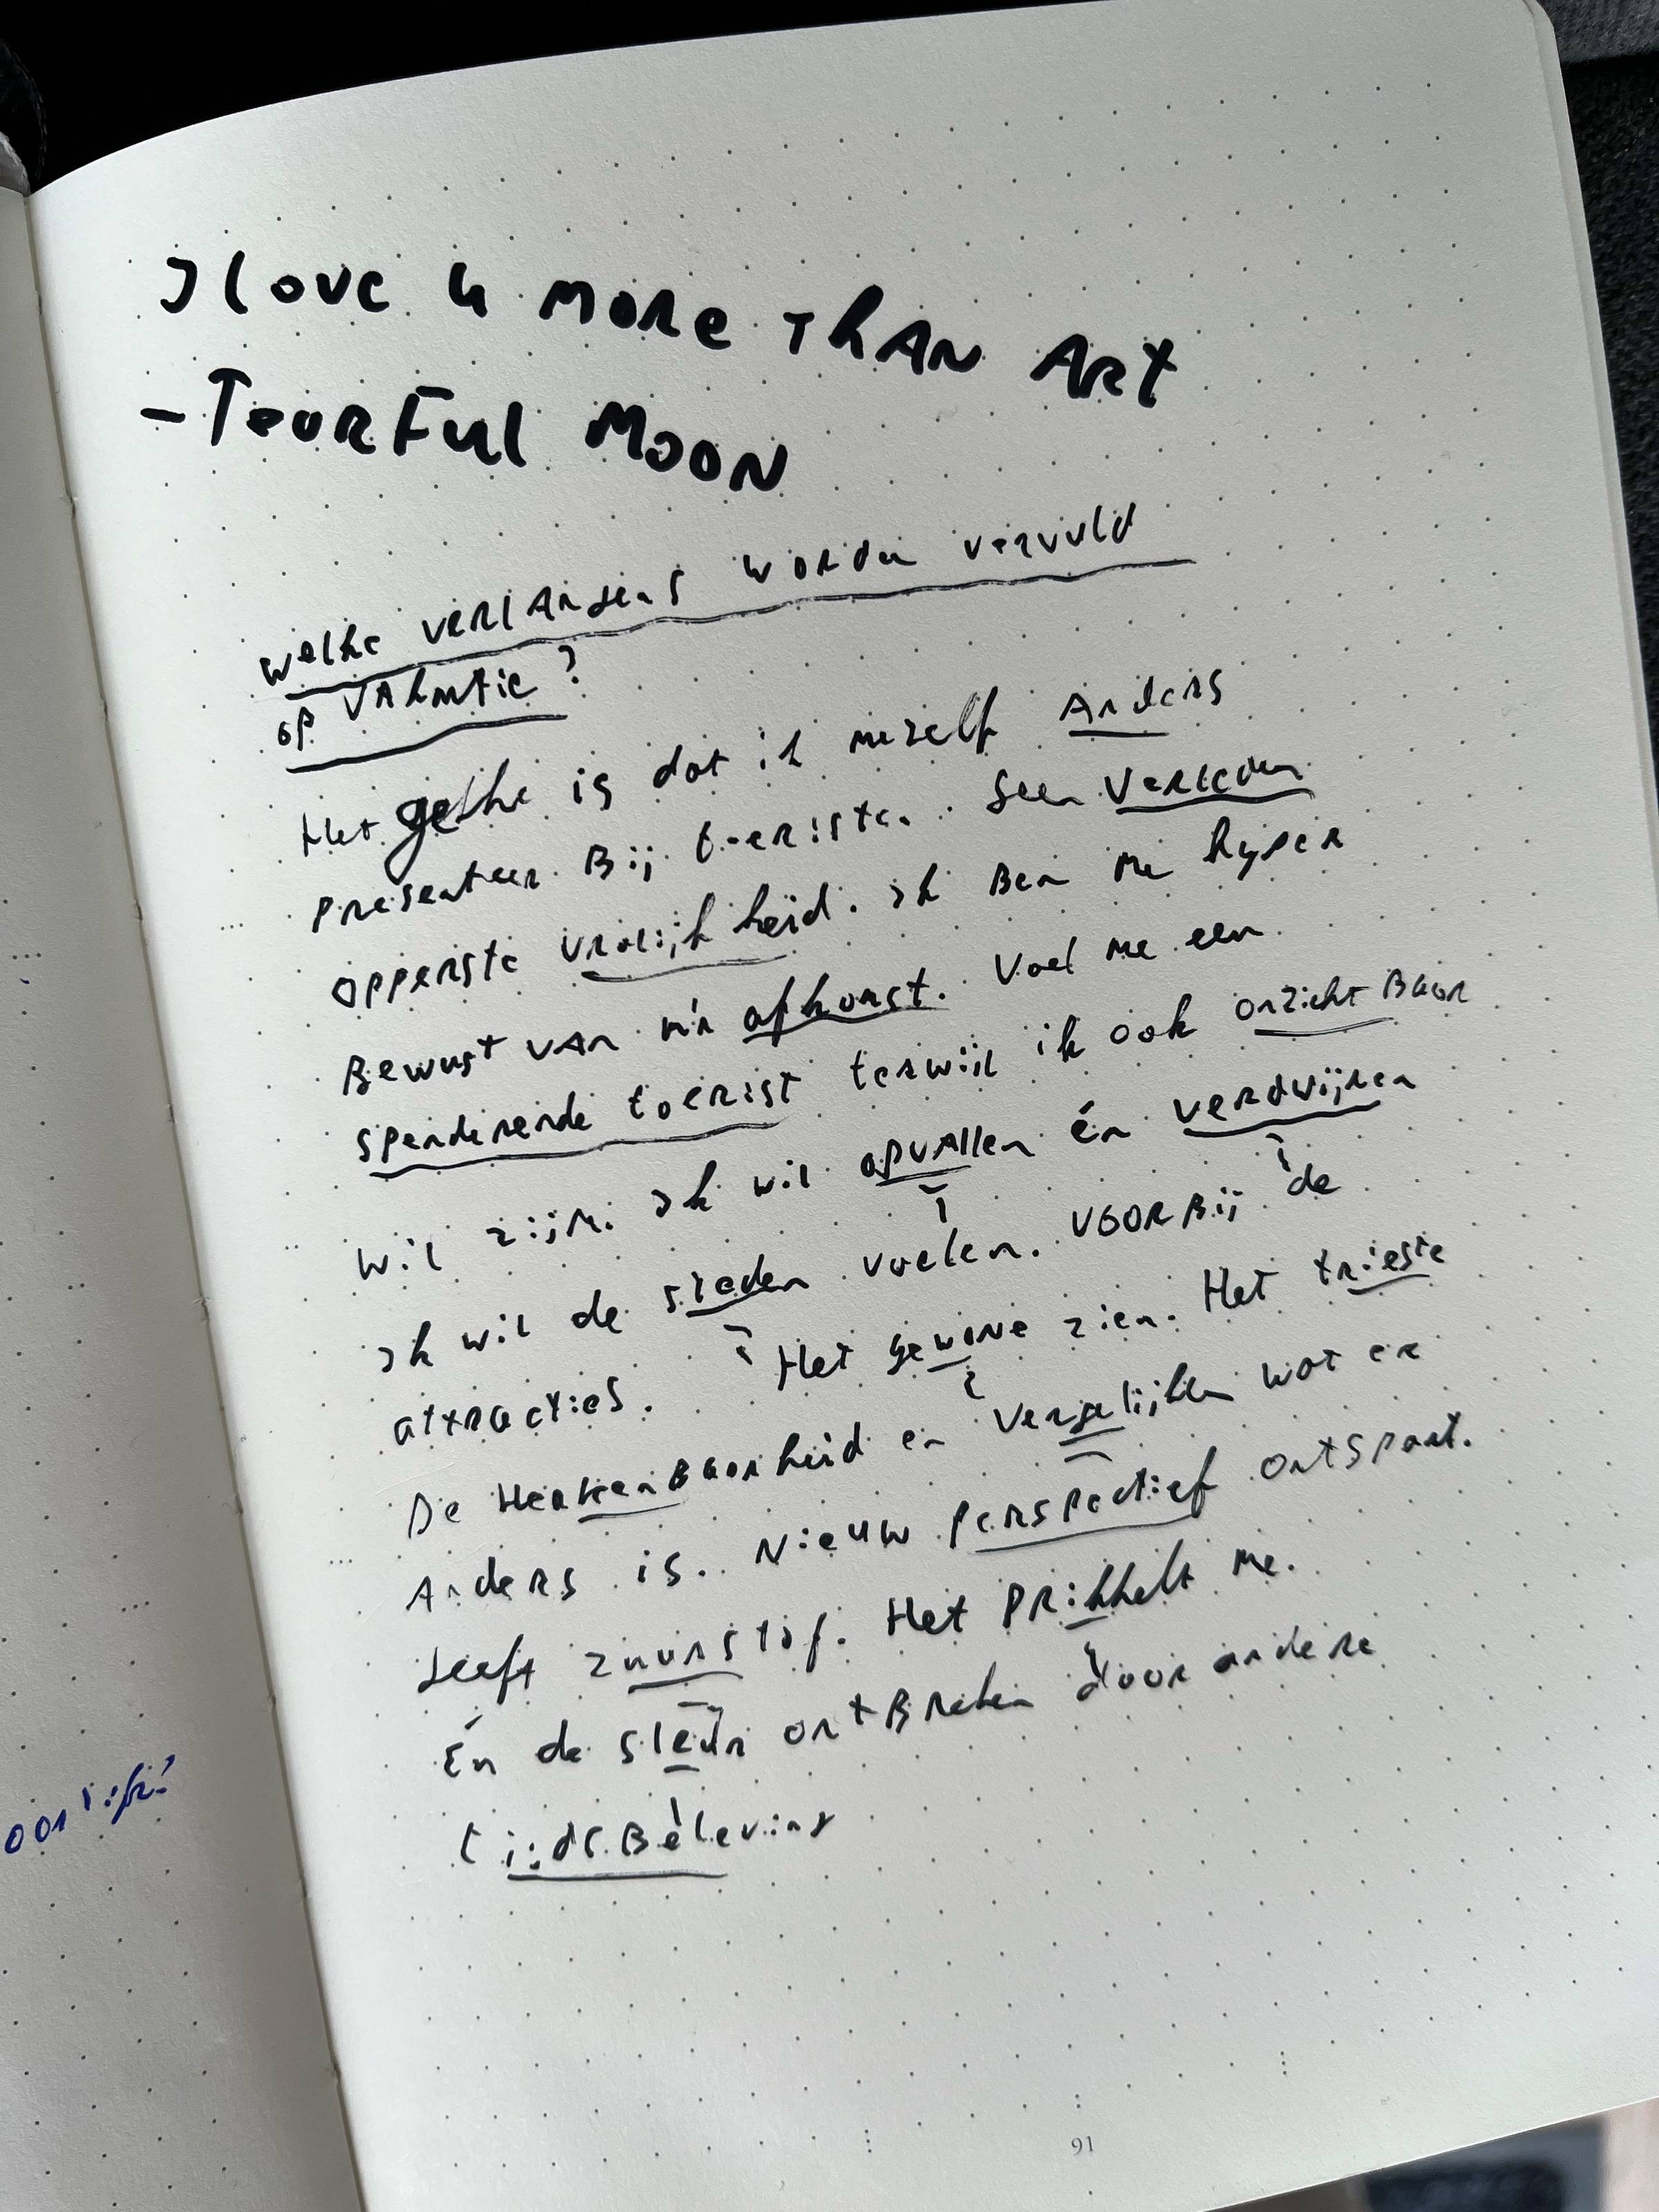 I love u more than Art
- Tearful Moon
welke verlangens worden vervuld
op vakantie?
Het gekke is dat ik mezelf Anders
presenteer Bij toeristen. Geen Verleden
opperste vrolijkheid. ik Ben me hyper
Bewust van m'n afkomst. Voel me een
spenderende toerist terwijl ik ook onzichtBaar
wil zijn. Ik wil opvallen én verdwijnen
Ik wil de steden voelen. VOORBij de
attracties. Het gewone zien. Het trieste
De HerkenBaarheid en Vergelijken wat er
Anders is. Nieuw perspectief ontspant.
Geeft zuurstof. Het Prikkelt me.
Én de sleur ontBreken door andere
tijdsBeleving
91